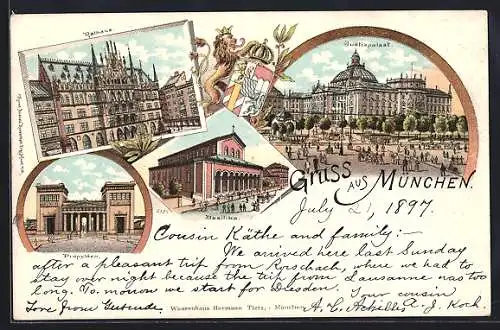 Rathaus.
Justizpalast.
Gruss aus München.
Propyläen.
Basilika.
July 21, 1897.
Cousin Käthe and family:-
We arrived here last Sunday
after a pleasant trip from Rorschach, where we had to
stay over night because the trip from Lausanne was too
long. To morrow we start for Dresden. Your cousin
Love from Gertrude.
A. J. Koch.
Warenhaus Hermann Tietz, München